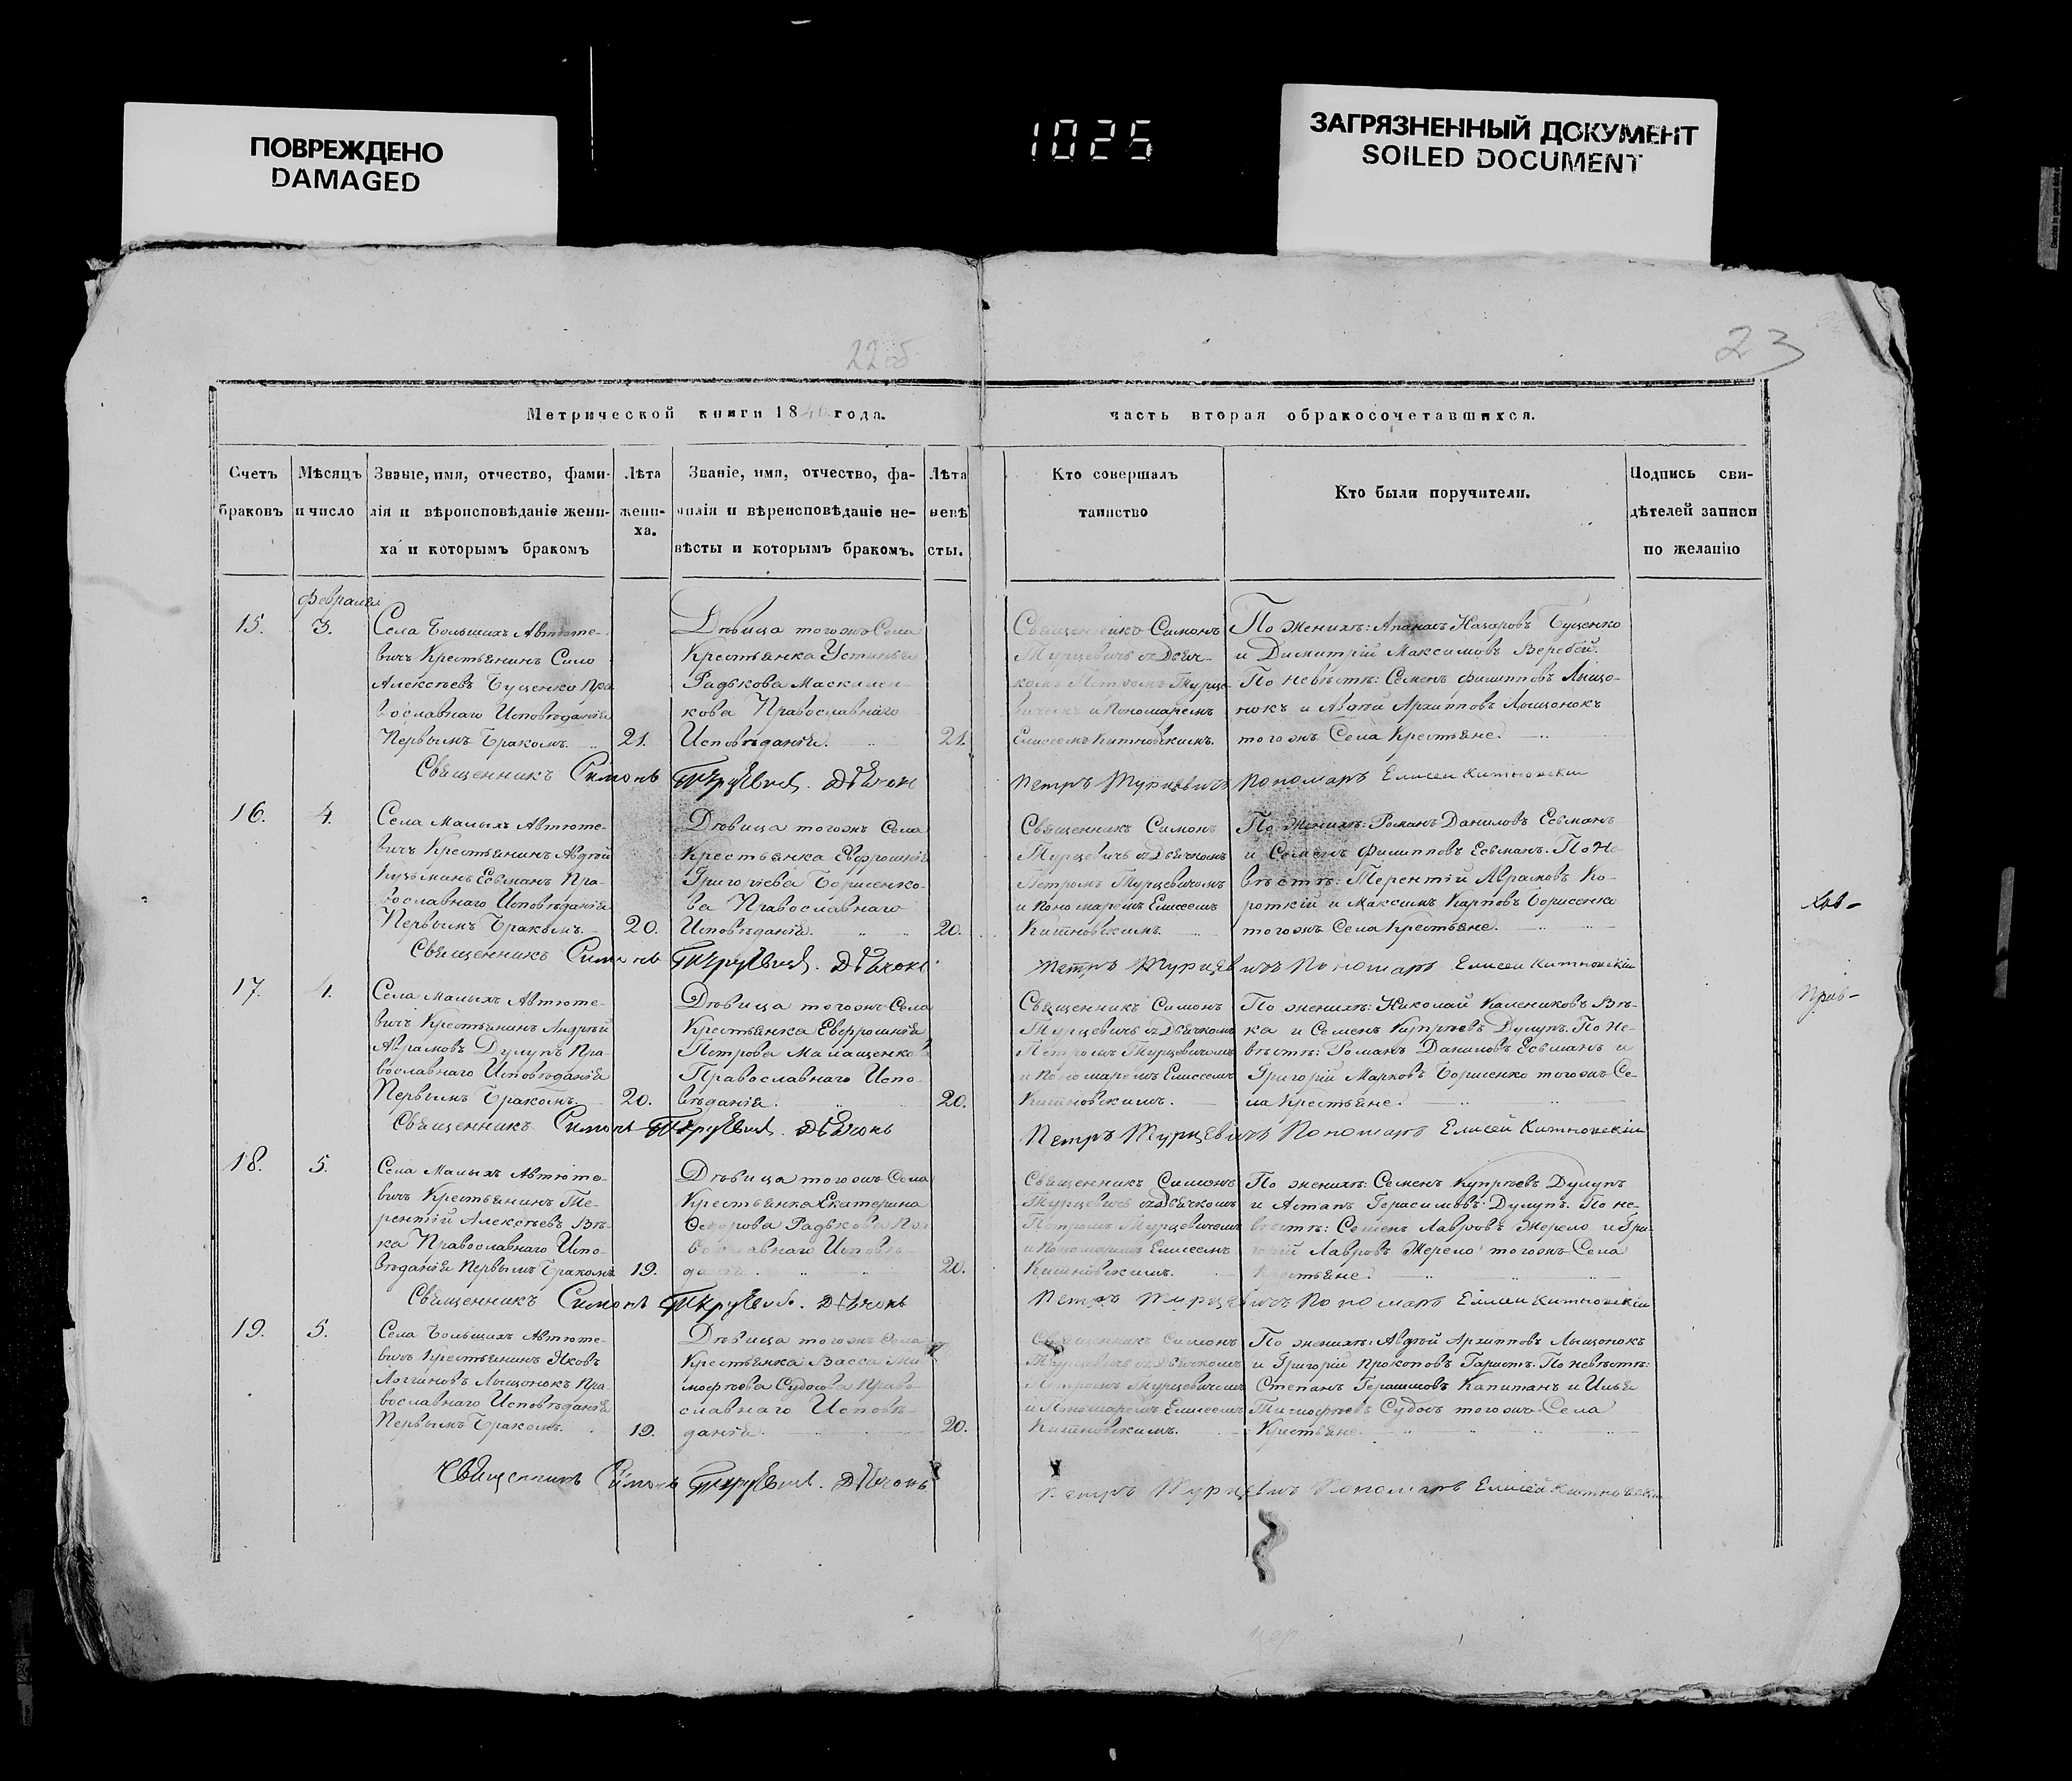 ПОВРЕЖДЕНО
DAMAGED
1025
ЗАГРЯЗНЕННЫЙ ДОКУМЕНТ
SOILED DOCUMENT
22об
23
Метрической книги 1840 года.
часть вторая обракосочетавшихся.
Счетъ
браковъ
Мѣсяцъ
и число
Званіе, имя, отчество, фами-
лія и вѣроисповѣданіе жени-
ха и которымъ бракомъ
Лѣта
жени-
ха.
Званіе, имя, отчество, фа-
милія и вѣреисповѣданіе не-
вѣсты и которымъ бракомъ.
Лѣта
невѣ
сты.
Кто совершалъ
таинство
Кто были поручители.
Подпись сви-
дѣтелей записи
по желанію
Февраля
15.
3.
Села Большихъ Автюте-
вичъ Крестьянинъ Сило
Алексѣевъ Буценко Пра
вославнаго Исповѣданія
Первымъ Бракомъ.
21.
Дѣвица тогожъ Села
Крестьянка Устинья
Радькова
кова Православнаго
Исповѣданія.
21.
Священникъ Симонъ
Турцевичъ съ Дьяч-
комъ Петромъ Турце-
вичемъ и Пономаремъ
Елисеемъ Китновскимъ.
По Женихѣ: Апанасъ Назаровъ Буценко
и Димитрій Максимовъ Веребей.
По невѣстѣ: Семенъ Филипповъ Лыщо-
нокъ и Авдѣй Архипповъ Лыщонокъ
тогожъ Села Крестьяне.
Священникъ Симонъ Турцевичъ. Дьячокъ
Петръ Турцевичъ Пономарь Елисей Китновскій
16.
4.
Села Малыхъ Автюте-
вичъ Крестьянинъ Авдѣй
Кузьминъ Есьманъ Пра-
вославнаго Исповѣданія
Первымъ Бракомъ.
20.
Дѣвица тогожъ Села
Крестьянка Евфросинія
Григоріева Борисенко-
ва Православнаго
Исповѣданія.
20.
Священникъ Симонъ
Турцевичъ съ Дьячкомъ
Петромъ Турцевичемъ
и Пономаремъ Елисеемъ
Китновскимъ.
По Женихѣ: Романъ Даниловъ Есьманъ
и Семенъ Филипповъ Есьманъ. По Не-
вѣстѣ: Терентій Аврамовъ Ко-
роткій и Максимъ Карповъ Борисенко
тогожъ Села Крестьяне.
Священникъ Симонъ Турцевичъ. Дьячокъ
Петръ Турцевичъ Пономарь Елисей Китновскій
17.
4.
Села Малыхъ Автюте-
вичъ Крестьянинъ Андрѣй
Аврамовъ Дулупъ Пра-
вославнаго Исповѣданія
Первымъ Бракомъ
20.
Дѣвица тогожъ Села
Крестьянка Евфросинія
Петрова Малащенкова
Православнаго Испо-
вѣданія.
20.
Священникъ Симонъ
Турцевичъ съ Дьячкомъ
Петромъ Турцевичемъ
и Пономаремъ Елисеемъ
Китновскимъ.
По женихѣ: Николай Калениковъ Вѣ-
ка и Семенъ Купрѣевъ Дулупъ. По Не-
вѣстѣ: Романъ Даниловъ Есьманъ и
Григорій Марковъ Борисенко тогожъ Се-
ла Крестьяне.
Священникъ Симонъ Турцевичъ. Дьячокъ
Петръ Турцевичъ Пономарь Елисей Китновскій
18.
5.
Села Малыхъ Автюте-
вичъ Крестьянинъ Те-
рентій Алексѣевъ Вѣ-
ка Православнаго Испо-
вѣданія Первымъ Бракомъ
19.
Дѣвица тогожъ Села
Крестьянка Екатерина
Ѳедорова Радькова Пра
вославнаго Исповѣ-
данія.
20.
Священникъ Симонъ
Турцевичъ съ Дьячкомъ
Петромъ Турцевичемъ
и Пономаремъ Елисеемъ
Китновскимъ.
По женихѣ: Семенъ Купрѣевъ Дулупъ
и Астапъ Герасимовъ Дулупъ. По не-
вѣстѣ: Семенъ Лавровъ Жерело и Гри-
горій Лавровъ Жерело тогожъ Села
Крестьяне.
Священникъ Симонъ Турцевичъ. Дьячокъ
Петръ Турцевичъ Пономарь Елисей Китновскій
19.
5.
Села Большихъ Автюте-
вичъ Крестьянинъ Яковъ
Логгиновъ Лыщонокъ Пра
вославнаго Исповѣданія
Первымъ Бракомъ.
19.
Дѣвица тогожъ Села
Крестьянка Васса Ти-
мофѣева Судосова Право-
славнаго Исповѣ-
данія.
20.
Священникъ Симонъ
Турцевичъ съ Дьячкомъ
Петромъ Турцевичемъ
и Пономаремъ Елисеемъ
Китновскимъ.
По женихѣ: Авдѣй Архипповъ Лыщонокъ
и Григорій Прокоповъ Гаристъ. По невѣстѣ:
Степанъ Герасимовъ Капитанъ и Илья
Тимофѣевъ Судосъ тогожъ Села
Крестьяне.
Священникъ Симонъ Турцевичъ. Дьячокъ
Петръ Турцевичъ Пономарь Елисей Китновскій